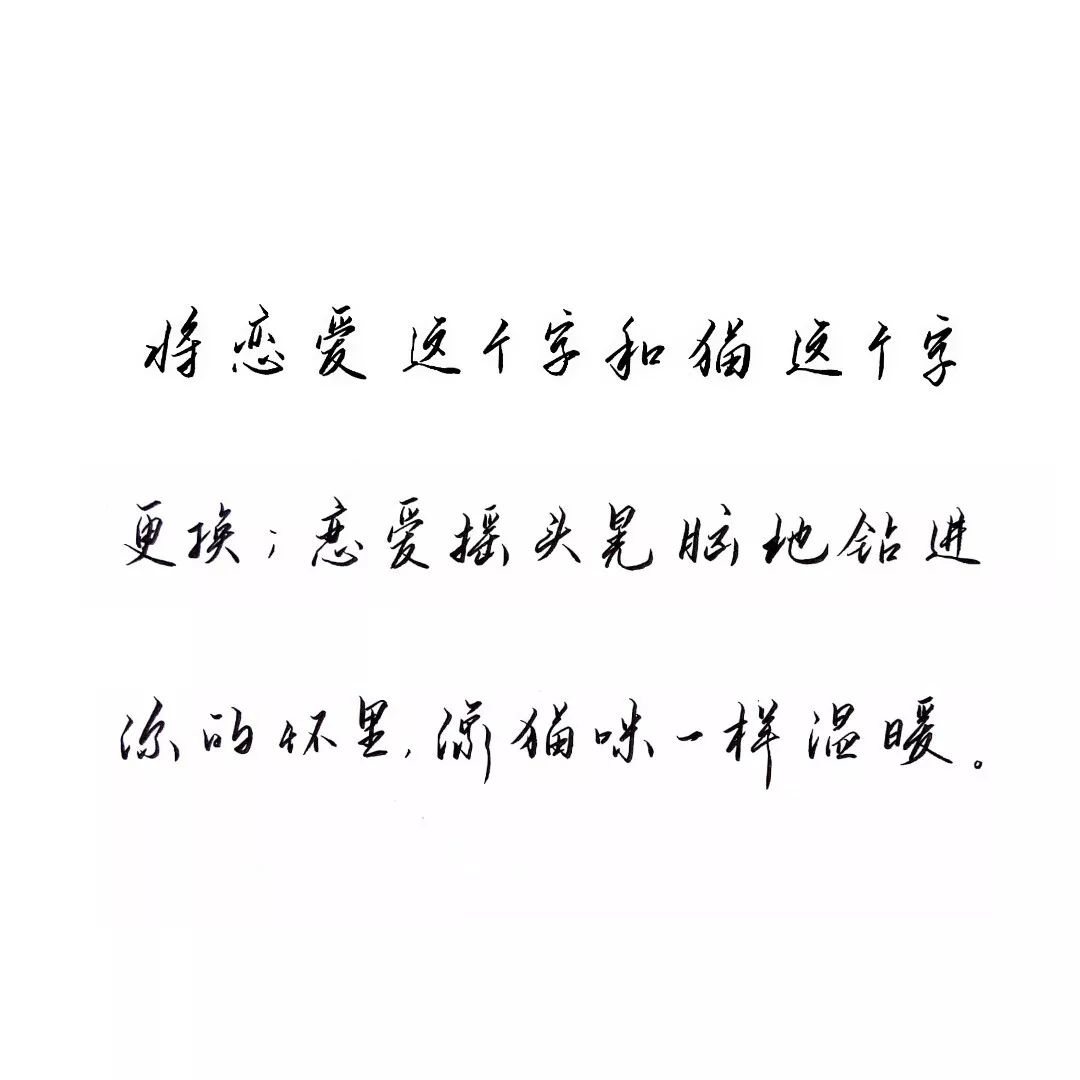 将恋爱这个字和猫这个字
更换;恋爱摇头晃脑地钻进
你的怀里,像猫咪一样温暖。